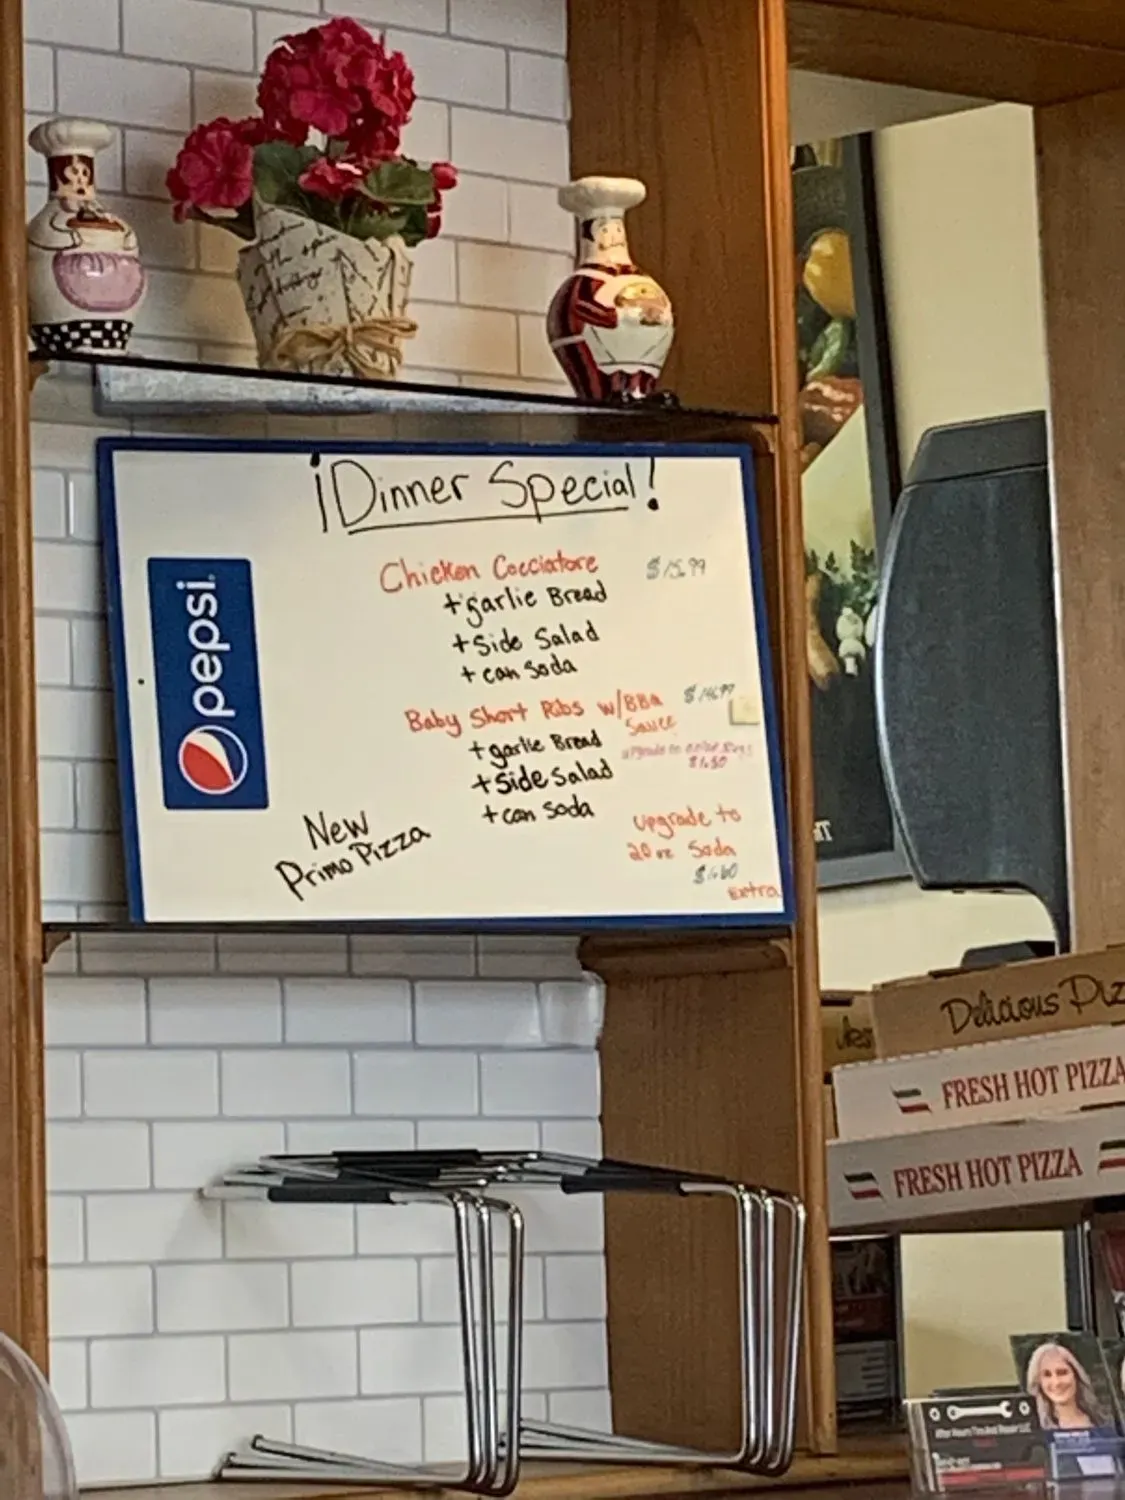 ¡Dinner Special!
Chicken Cocciatore $15.99
+ garlic Bread
+ Side Salad
+ can Soda
Baby Short Ribs w/BBQ Sauce $14.99
+ garlic Bread
+ Side Salad
+ can Soda
upgrade to
Upgrade to
20 oz Soda
Extra
New
Primo Pizza
pepsi
Delicious
FRESH HOT PIZZA
FRESH HOT PIZZA